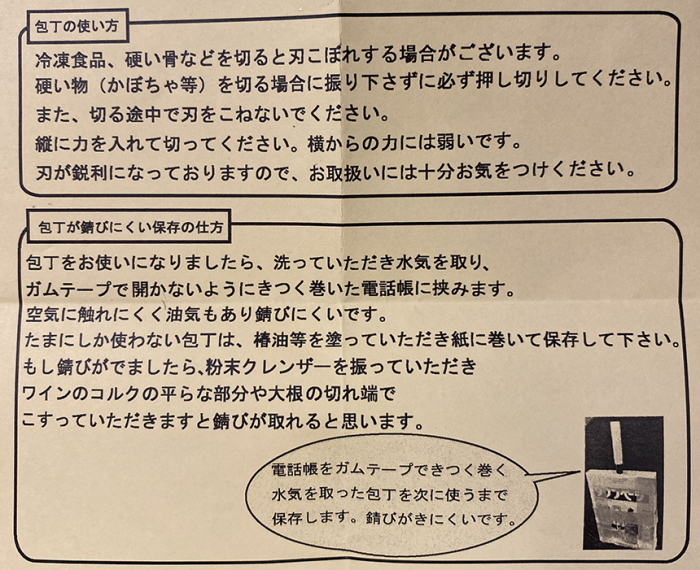 包丁の使い方
冷凍食品、硬い骨などを切ると刃こぼれする場合がございます。
硬い物（かぼちゃ等）を切る場合に振り下さずに必ず押し切りしてください。
また、切る途中で刃をこねないでください。
縦に力を入れて切ってください。横からの力には弱いです。
刃が鋭利になっておりますので、お取扱いには十分お気をつけください。
包丁が錆びにくい保存の仕方
包丁をお使いになりましたら、洗っていただき水気を取り、
ガムテープで開かないようにきつく巻いた電話帳に挟みます。
空気に触れにくく油気もあり錆びにくいです。
たまにしか使わない包丁は、椿油等を塗っていただき紙に巻いて保存して下さい。
もし錆びがでましたら、粉末クレンザーを振っていただき
ワインのコルクの平らな部分や大根の切れ端で
こすっていただきますと錆びが取れると思います。
電話帳をガムテープできつく巻く
水気を取った包丁を次に使うまで
保存します。錆びがきにくいです。